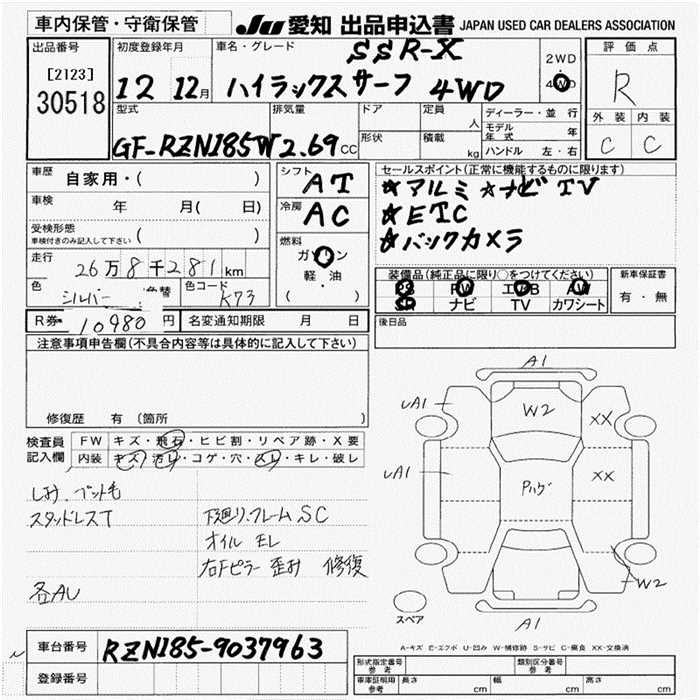 車内保管・守衛保管
JU 愛知 出品申込書 JAPAN USED CAR DEALERS ASSOCIATION
出品番号
[2123]
30518
初度登録年月
12 12月
車名・グレード
SSR-X
ハイラックスサーフ 4WD
2WD
4WD
評価点
R
外装 内装
C C
型式
GF-RZN185W
排気量
2.69cc
ドア
形状
定員
人
積載
kg
ディーラー・並行
モデル年式 年
ハンドル 左・右
車歴 自家用・( )
車検 年 月( 日)
受検形態
車検付きのみ記入して下さい ( )
走行
26万8千281km
色
シルバー
色替
色コード
K73
シフト
AT
冷房
AC
燃料
ガソリン
軽・油
( )
セールスポイント(正常に機能するものに限ります)
☆アルミ ☆ナビTV
☆ETC
☆バックカメラ
装備品(純正品に限り○をつけてください)
PS PW エアB AW
SR ナビ TV カワシート
新車保証書
有・無
R券 10980円
名変通知期限 月 日
後日品
注意事項申告欄(不具合内容等は具体的に記入して下さい)
修復歴 有 (箇所 )
検査員記入欄
FW キズ・飛石・ヒビ割・リペア跡・X要
内装 キズ・汚レ・コゲ・穴・スレ・キレ・破レ
しみ・ペット毛
スタッドレスT
下廻り、フレームSC
オイルモレ
右Fピラー歪み 修復
各AU
A1
W2
UA1
XX
UA1
XX
Pハゲ
W2
A1
スペア
A-キズ E-エクボ U-凹み W-補修跡 S-サビ C-腐食 XX-交換済
車台番号
RZN185-9037963
登録番号
形式指定番号
参考
類別区分番号
参考
車庫証明用
参考
長さ cm
幅 cm
高さ cm